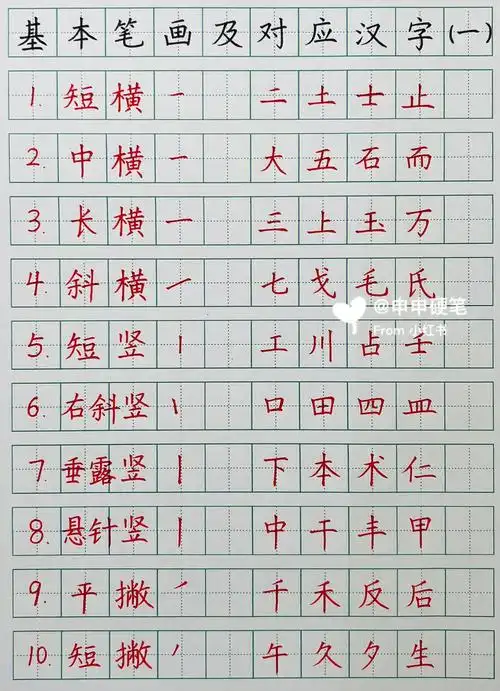 基本笔画及对应汉字(一)
1. 短横 一 二土士止
2. 中横 一 大五石而
3. 长横 一 三上玉万
4. 斜横 ㇀ 七戈毛氏
@申申硬笔
From 小红书
5. 短竖 丨 工川占壬
6. 右斜竖 丨 口田四皿
7. 垂露竖 丨 下本术仁
8. 悬针竖 丨 中干丰甲
9. 平撇 ㇒ 千禾反后
10. 短撇 ㇒ 午久夕生